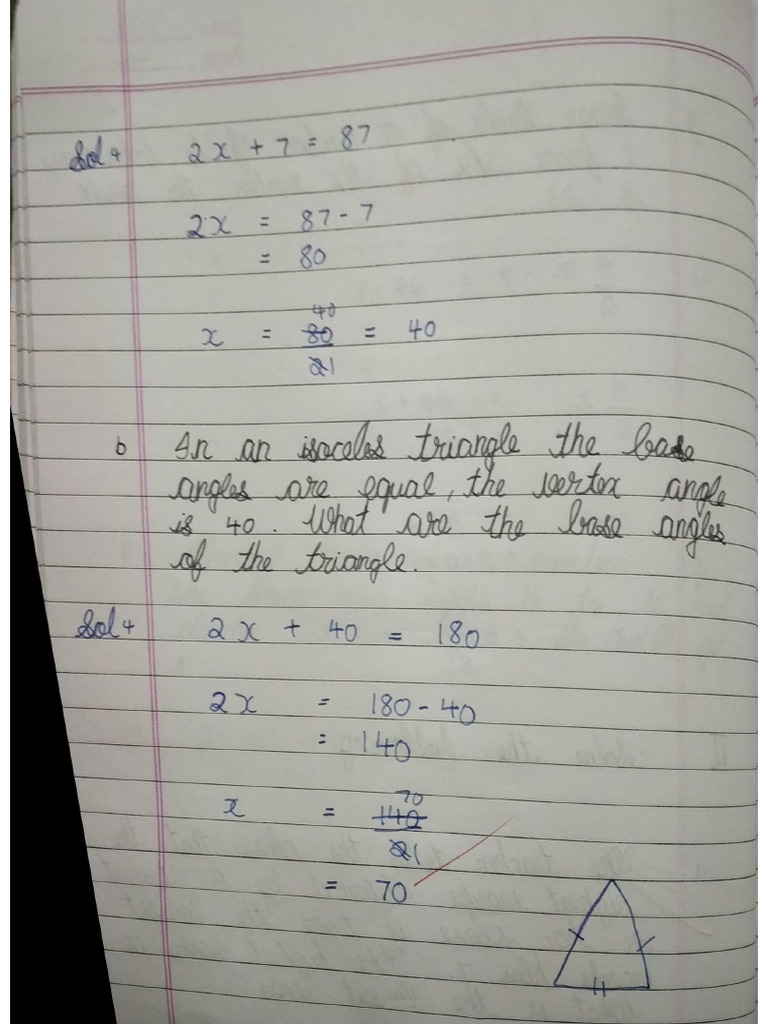 Sol 4 2x + 7 = 87
2x = 87 - 7
= 80
40
x = 80 = 40
21
b In an isoceles triangle the base
angles are equal, the vertex angle
is 40. What are the base angles
of the triangle.
Sol 4 2x + 40 = 180
2x = 180 - 40
= 140
70
x = 140
21
= 70